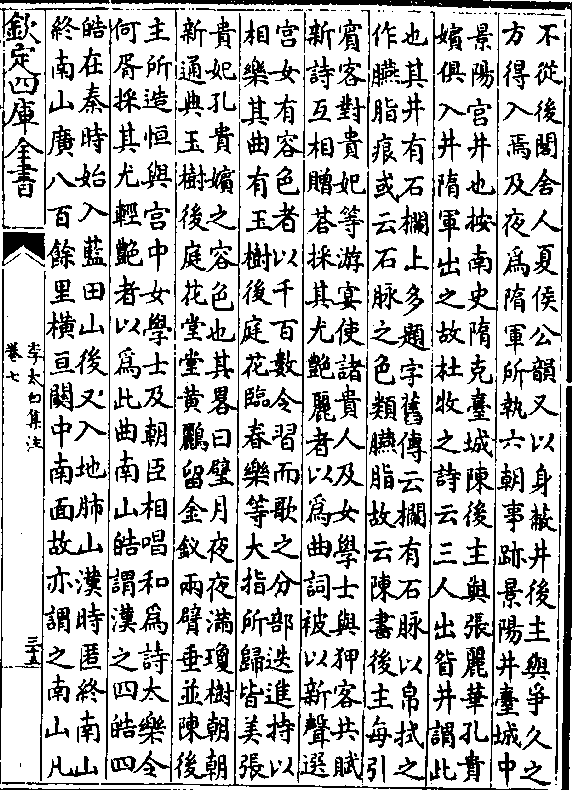 不從後閤舍人夏侯公韻又以身蔽井後主與爭久之
方得入焉及夜為隋軍所執六朝事跡景陽井臺城中
景陽宮井也按南史隋克臺城陳後主與張麗華孔貴
嬪俱入井隋軍出之故杜牧之詩云三人出眢井謂此
也其井有石欄上多題字舊傳云欄有石脉以帛拭之
作臙脂痕或云石脉之色類臙脂故云陳書後主每引
賓客對貴妃等游宴使諸貴人及女學士與狎客共賦
新詩互相贈荅採其尤艷麗者以為曲詞被以新聲選
宮女有容色者以千百數令習而歌之分部迭進持以
相樂其曲有玉樹後庭花臨春樂等大指所歸皆美張
貴妃孔貴嬪之容色也其畧曰璧月夜夜滿瓊樹朝朝
新通典玉樹後庭花堂堂黄鸝留金釵兩臂垂並陳後
主所造恒與宮中女學士及朝臣相唱和為詩太樂令
何胥採其尤輕艷者以為此曲南山皓謂漢之四皓四
皓在秦時始入藍田山後又入地肺山漢時匿終南山
終南山廣八百餘里橫亘關中南面故亦謂之南山凡
欽定四庫全書
李太白集注
卷七
三十五